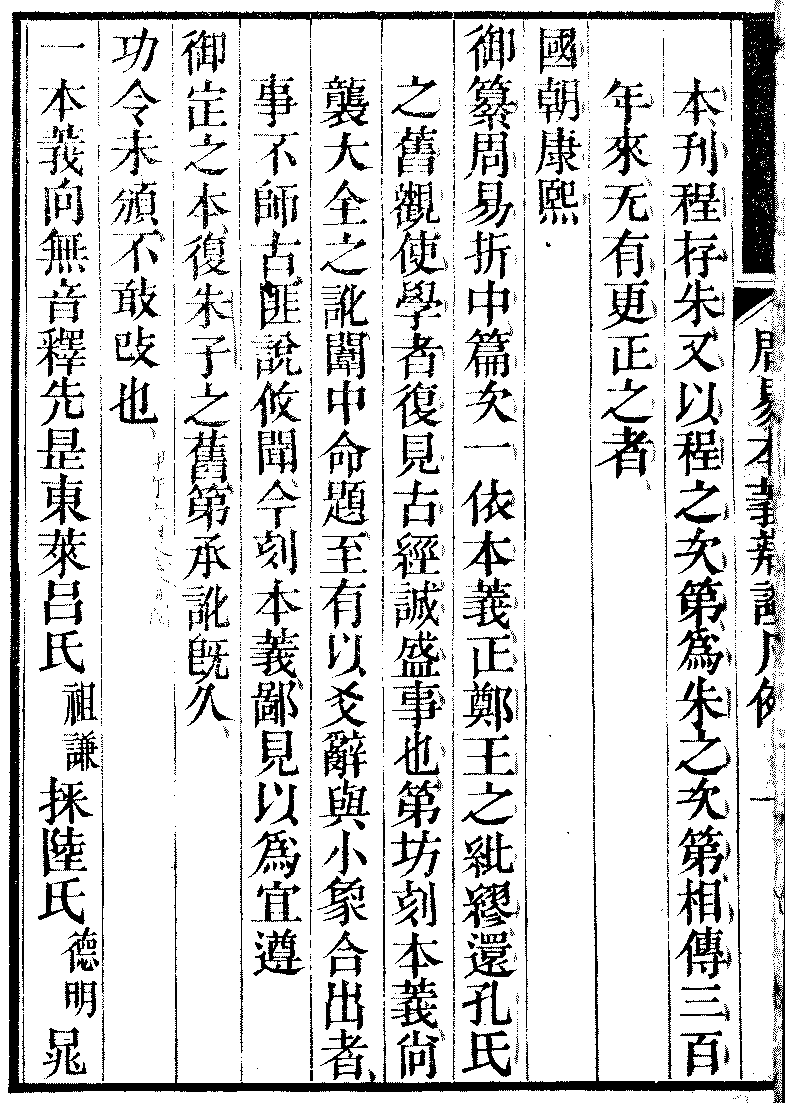 本刊程存朱又以程之次第為朱之次第相傳三百
年來无有更正之者
國朝康熙
御纂周易折中篇次一依本義正鄭王之紕繆還孔氏
之舊觀使學者復見古經誠盛事也第坊刻本義尙
襲大全之訛闈中命題至有以爻辭與小象合出者
事不師古匪說攸聞今刻本義鄙見以為宜遵
御定之本復朱子之舊第承訛旣久
功令未頒不敢改也
一本義向無音釋先是東萊呂氏祖謙採陸氏德明晁
周易本義辨證凡例 一